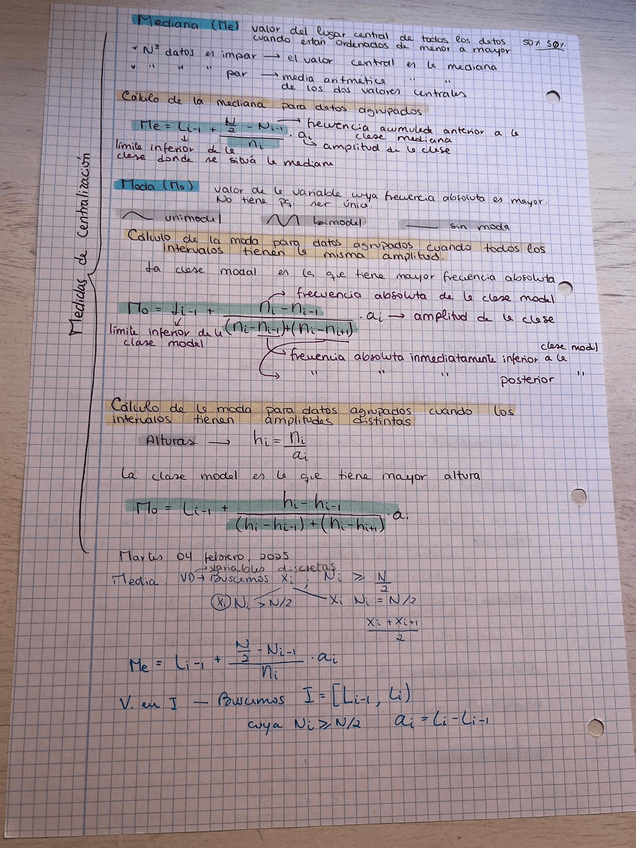 Medidas de Centralización
Mediana (Me) valor del lugar central de todos los datos 50% 50%
cuando están ordenados de menor a mayor
* Nº datos es impar → el valor central es la mediana
* " " " par → media aritmética " "
de los dos valores centrales
Cálculo de la mediana para datos agrupados
Me = Li-1 + (N/2 - Ni-1)/ni · ai
→ frecuencia acumulada anterior a la
clase mediana
→ amplitud de la clase
límite inferior de la
clase donde se sitúa la mediana
Moda (Mo) valor de la variable cuya frecuencia absoluta es mayor.
No tiene pq ser único
unimodal bimodal sin moda
Cálculo de la moda para datos agrupados cuando todos los
intervalos tienen la misma amplitud.
La clase modal es la que tiene mayor frecuencia absoluta
→ frecuencia absoluta de la clase modal
Mo = Li-1 + (ni - ni-1)/((ni - ni-1) + (ni - ni+1)) · ai → amplitud de la clase
límite inferior de la
clase modal
clase modal
→ frecuencia absoluta inmediatamente inferior a la
→ " " " posterior "
Cálculo de la moda para datos agrupados cuando los
intervalos tienen amplitudes distintas
Alturas → hi = ni/ai
La clase modal es la que tiene mayor altura
Mo = Li-1 + (hi - hi-1)/((hi - hi-1) + (hi - hi+1)) · ai
Martes 04 febrero, 2025
→ variables discretas
Media VD → Buscamos Xi ; Ni ≥ N/2
Xi Ni > N/2 Xi Ni = N/2
(Xi + Xi+1)/2
Me = Li-1 + (N/2 - Ni-1)/ni · ai
V. en I — Buscamos I = [Li-1, Li)
cuya Ni ≥ N/2 ai = Li - Li-1